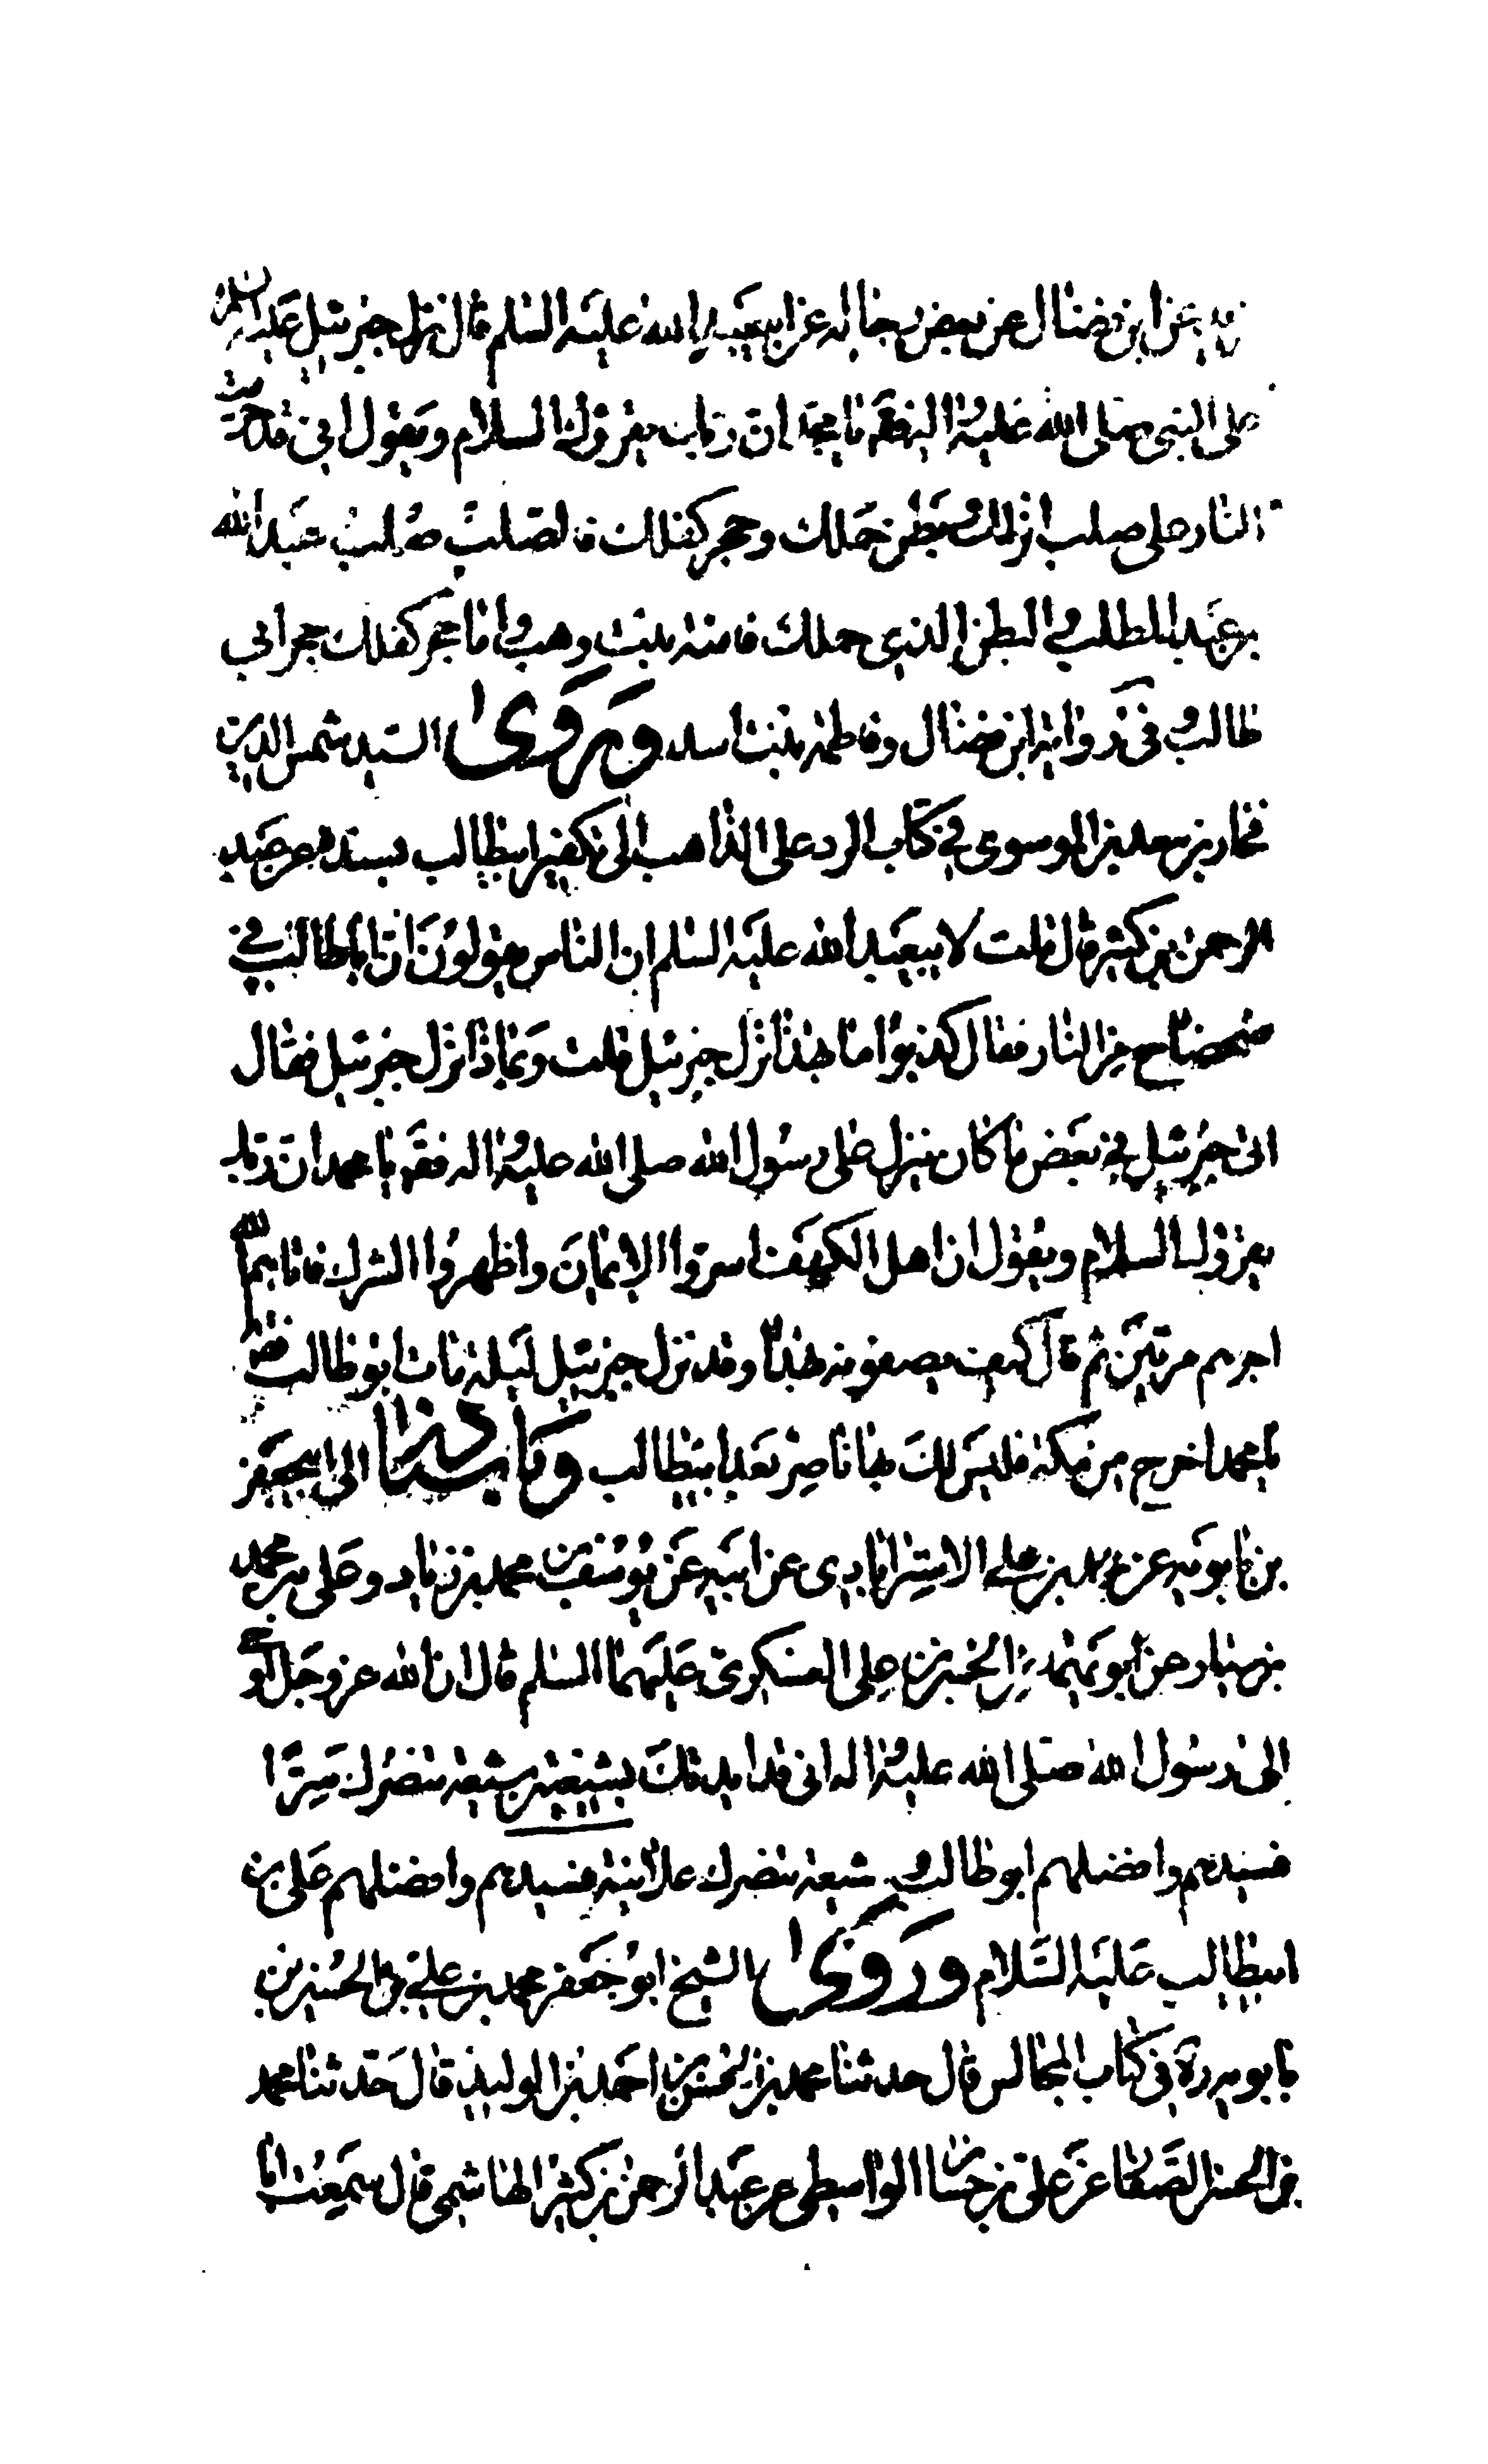 عن ابن فضال عن بعض رجاله عن ابيعبد الله عليه السلم قال نزل جبرئيل عليه السلم
على النبي صلى الله عليه واله فقال يا محمد ان ربك يقرؤك السلام ويقول اني قد حرمت
النار على صلب انزلك وبطن حملك وحجر كفلك فالصلب صلب عبد الله
بن عبد المطلب والبطن الذى حملك فامنه بنت وهب واما حجر كفلك فحجر ابي
طالب وفي رواية ابن فضال وفاطمة بنت اسد وروى السيد شمس الدين
فخار بن معد الموسوى في كتاب الرد على الذاهب الى تكفير ابيطالب بسنده عن عبد
الرحمن بن كثير قال قلت لابيعبد الله عليه السلم ان الناس يقولون ان اباطالب في
ضحضاح من النار فقال كذبوا ما بهذا نزل جبرئيل قلت وبماذا نزل جبرئيل فقال
اتى جبرئيل في بعض ما كان ينزل على رسول الله صلى الله عليه واله فقال يا محمد ان ربك
يقرؤك السلام ويقول ان اهل الكهف اسروا الايمان واظهروا الشرك فاتاهم الله
اجرهم مرتين ثم قال كيف يصفونه بهذا وقد نزل جبرئيل ليلة مات ابو طالب فقال
يا محمد اخرج من مكة فليس لك بها ناصر بعد ابيطالب وباسنادنا الى ابيجعفر
بن بابويه عن محمد بن علي الاسترابادى عن ابيه عن يوسف بن محمد بن زياد وعلى بن محمد
بن سيار عن ابويهما عن الحسن بن علي العسكري عليهما السلم قال ان الله عز وجل اوحى
الى رسول الله صلى الله عليه واله اني قد ايدتك بشيعتين شيعة تنصرك سرا
فسيدهم وافضلهم ابو طالب وشيعة تنصرك علانية فسيدهم وافضلهم على بن
ابيطالب عليه السلام وروى الشيخ ابو جعفر محمد بن علي بن الحسين بن
بابويه ره في كتاب المجالس قال حدثنا محمد بن الحسن بن احمد بن الوليد قال حدثنا محمد
بن الحسن الصفار عن على بن حسان الواسطى عن عبد الرحمن بن كثير الهاشمى قال سمعت ابا